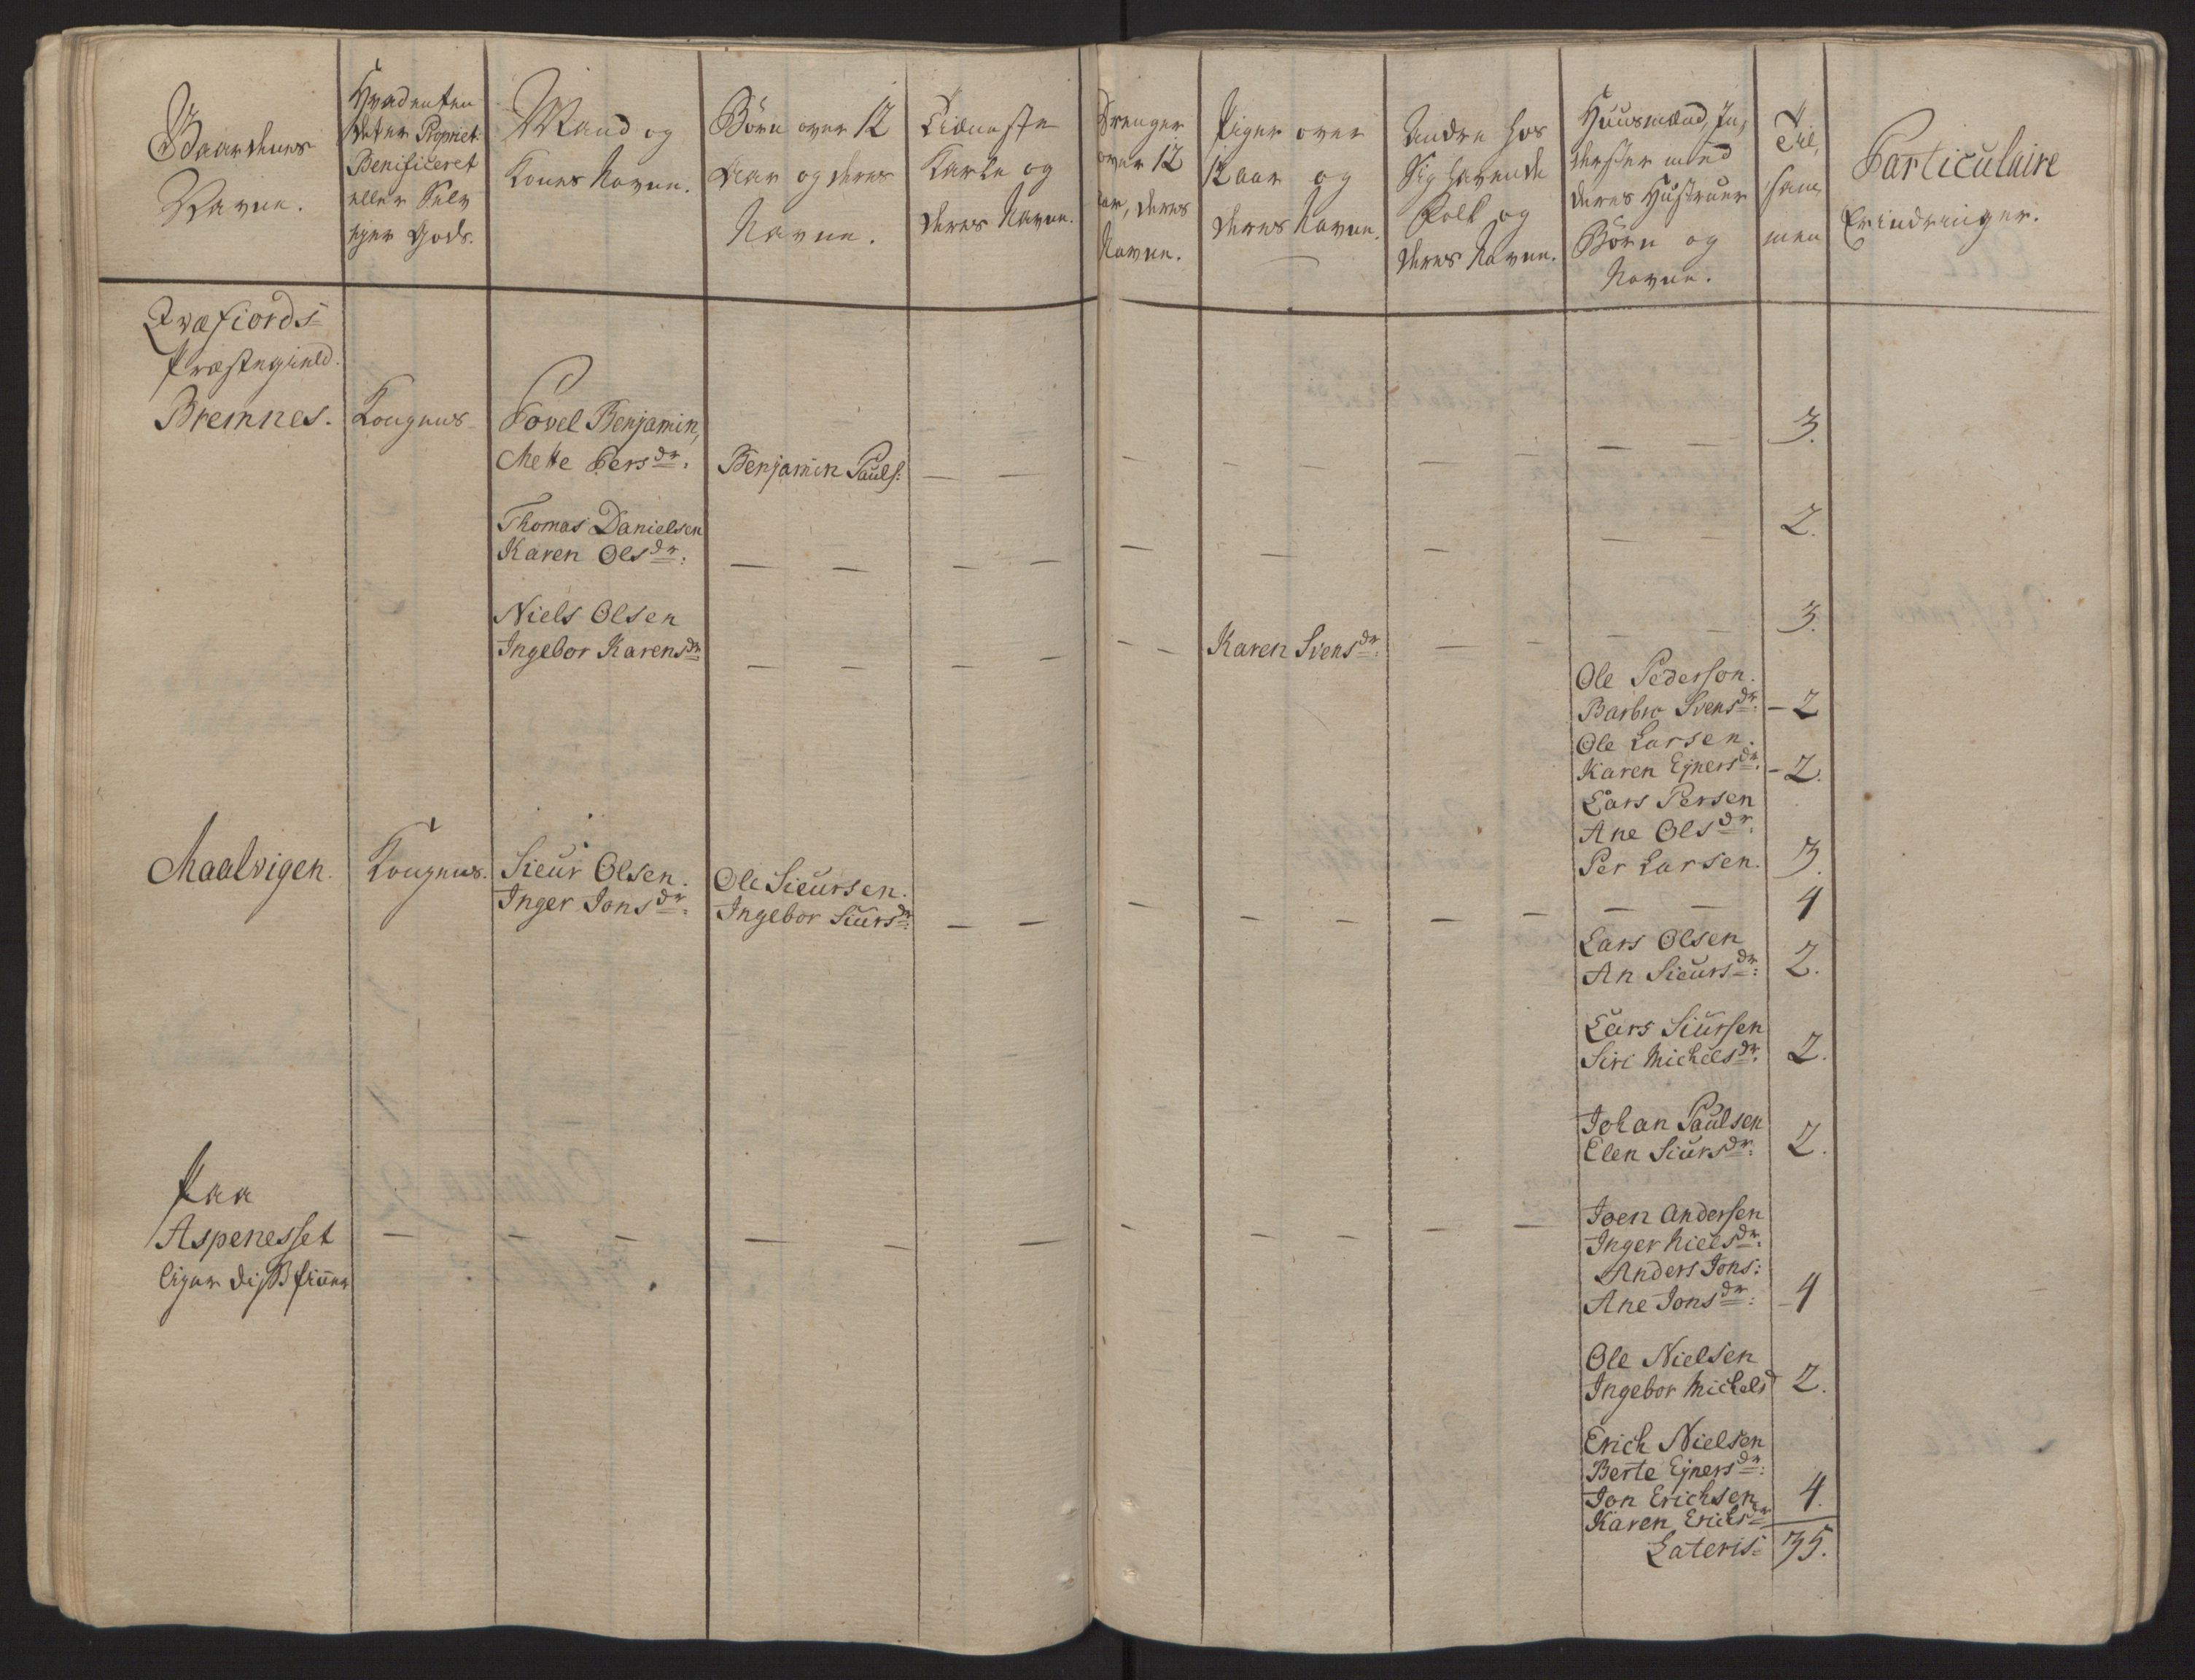 Gaardenes
Navne.
Hvad enten
det er Propriet:
Benificeret
eller Selv
ejer Gods.
Mand og
Kones Navne.
Børn over 12
Aar og deres
Navne.
Tieneste
Karle og
deres Navne.
Drenger
over 12
aar, deres
Navne.
Piger over
12 aar og
deres Navne.
Andre hos
Sig havende
Folk og
deres Navne.
Huusmænd, In,
derster med
deres Hustruer
Børn og
Navne.
Til,
sam,
men
Particulaire
Erindringer.
Qvæfiords-
Præstegield.
Bremnes. Kongens Povel Benjamin, — — 3.
Mette Persdr: Benjamin Pauls: — — — — — — —
Thomas Danielsen 2.
Karen Olsdr: — — — — — — — — —
Niels Olsen 3.
Ingebor Karensdr — — — — — — Karen Svensdr: — — — —
Ole Pederson.
Barbro Svensdr: – 2
Ole Larsen.
Karen Ejnersdr. – 2.
Lars Persen
Ane Olsdr.
Per Larsen. 3.
Maalvigen. Kongens. Sieur Olsen. Ole Sieursen. 4
Inger Jonsdr: Ingebor Siursdr: — — — — — — — — —
Lars Olsen
An Sieursdr: 2.
Lars Siursen
Siri Michelsdr. 2.
Johan Paulsen
Elen Siursdr: 2.
Paa
Aspenesset — — — — — — — — — — —
liger diße finner
Joen Andersen
Inger Nielsdr:
Anders Jons:
Ane Jonsdr: – 4
Ole Nielsen
Ingebor Michelsd 2.
Erich Nielsen
Berte Ejnersdr:
Jon Erichsen 4.
Karen Ericsdr
Lateris- 35.